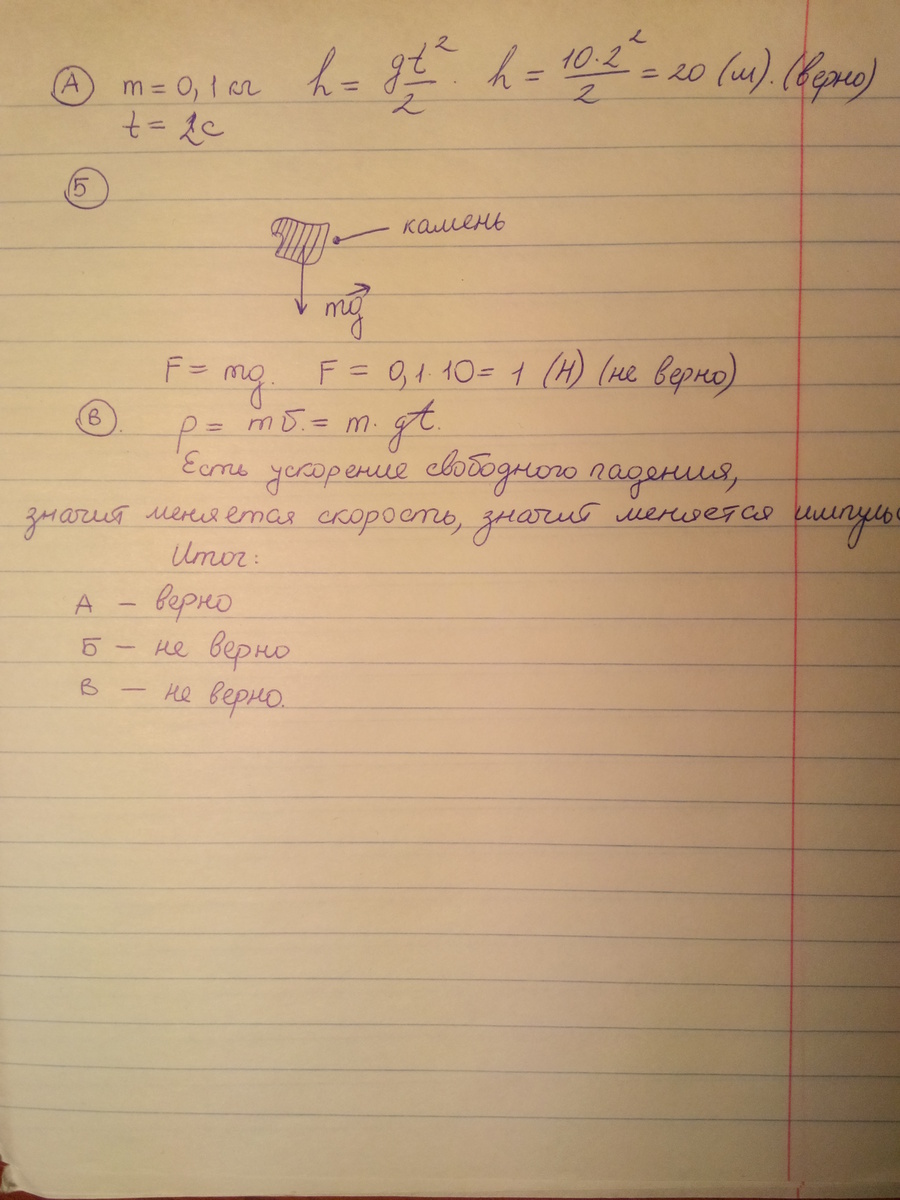 А m = 0,1 кг h = gt²/2. h = 10·2²/2 = 20 (м). (верно)
t = 2с
Б
камень
mg
F = mg. F = 0,1·10 = 1 (Н) (не верно)
В. p = mv. = m · gt.
Есть ускорение свободного падения,
значит меняется скорость, значит меняется импульс
Итог:
А – верно
Б – не верно
В – не верно.